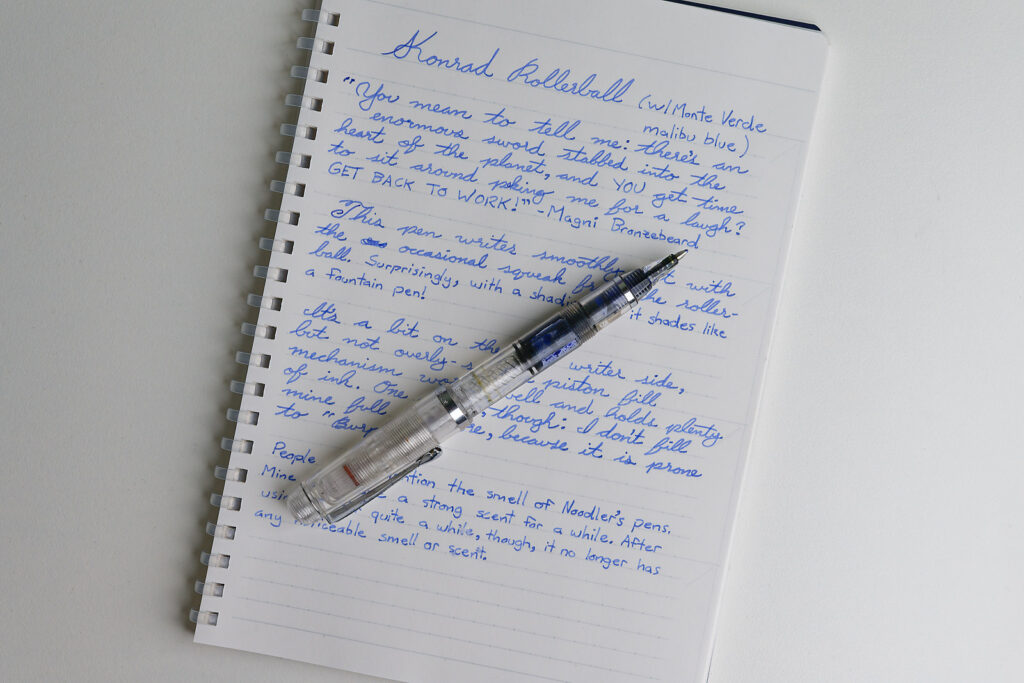 Konrad Rollerball (w/Monte Verde
malibu blue)
"You mean to tell me: there's an
enormous sword stabbed into the
heart of the planet, and YOU get time
to sit around poking me for a laugh?
GET BACK TO WORK!" -Magni Bronzebeard
This pen writer smoothly with
the occasional squeak the roller-
ball. Surprisingly, with a it shades like
a fountain pen!
It's a bit on the writer side,
but not overly- piston fill
mechanism well and holds plenty
of ink. One though: I don't fill
mine full because it is prone
to "
People the smell of Noodler's pens.
Mine a strong scent for a while. After
quite a while, though, it no longer has
any noticeable smell or scent.